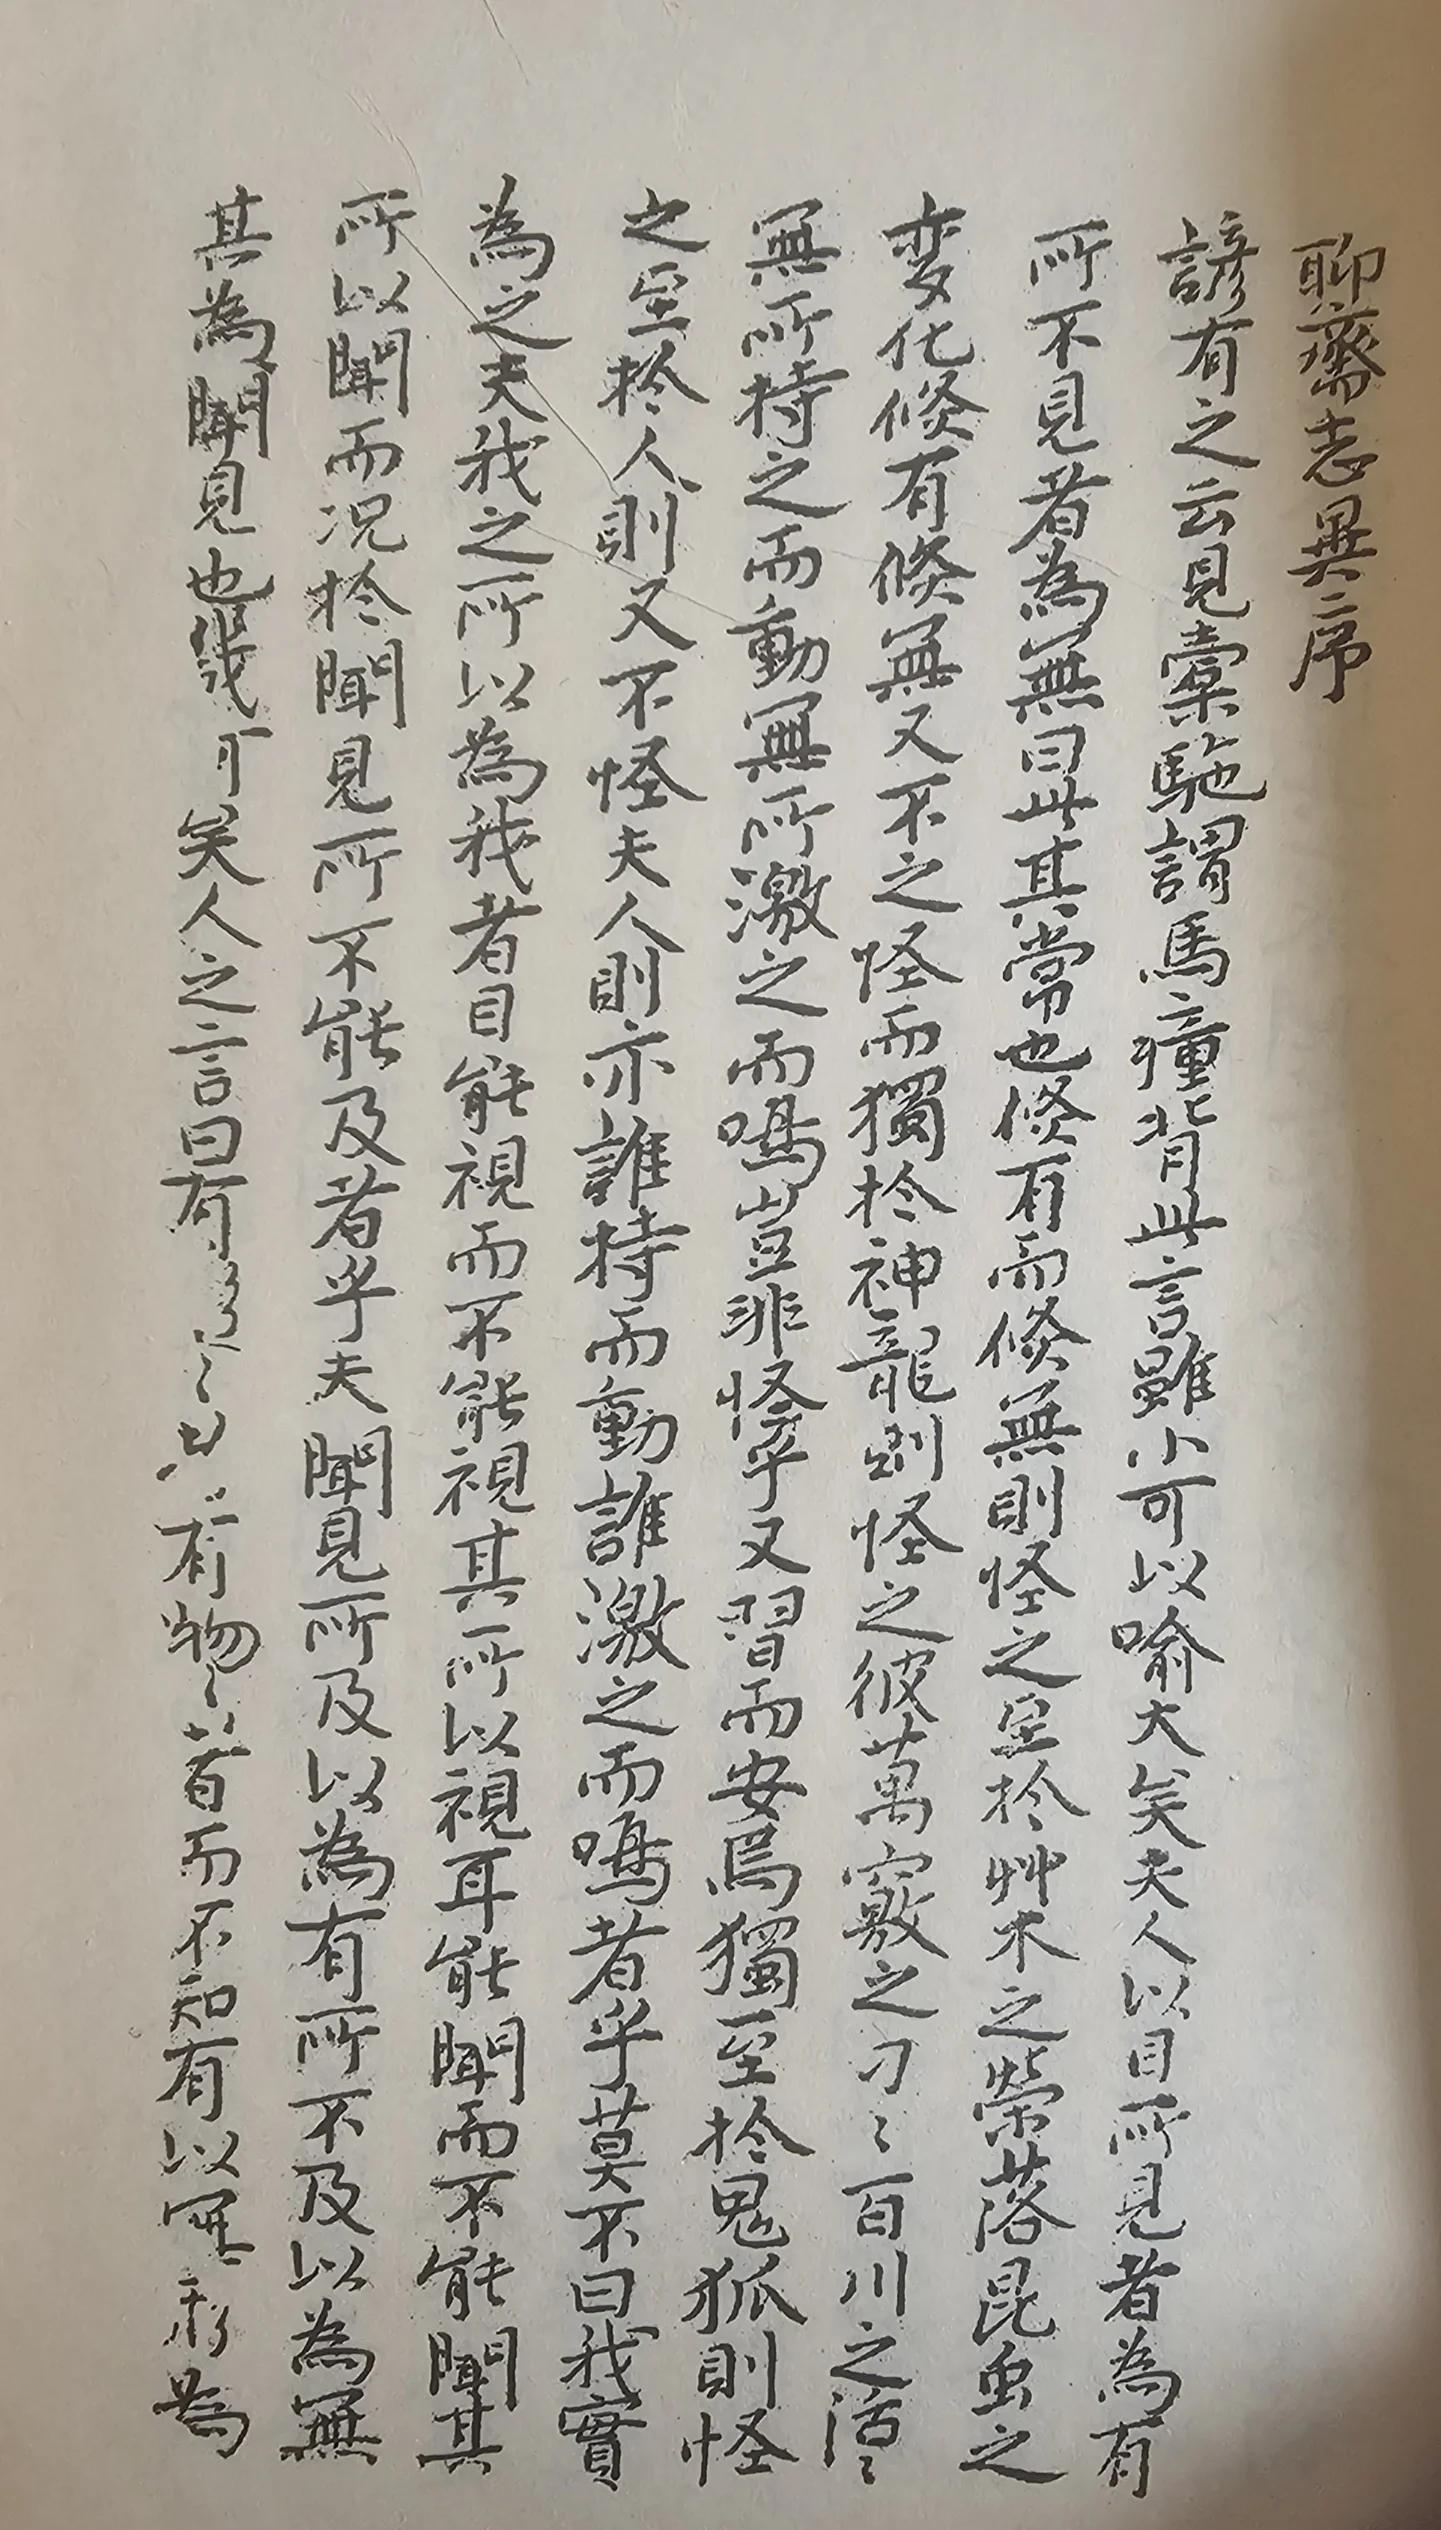 聊齋志異序
諺有之云見橐駞謂馬瘇背此言雖小可以喻大矣夫人以目所見者為有
所不見者為無曰此其常也倐有而倐無則怪之至扵艸木之榮落昆虫之
变化倐有倐無又不之怪而獨扵神龍則怪之彼萬竅之刁〻百川之活〻
無所持之而動無所激之而鳴豈非怪乎又習而安焉獨至扵鬼狐則怪
之至扵人則又不怪夫人則亦誰持而動誰激之而鳴者乎莫不曰我實
為之夫我之所以為我者目能視而不能視其所以視耳能聞而不能聞其
所以聞而况扵聞見所不能及者乎夫聞見所及以為有所不及以為無
其為聞見也幾可矣人之言曰有有物〻者而不知有以無形為